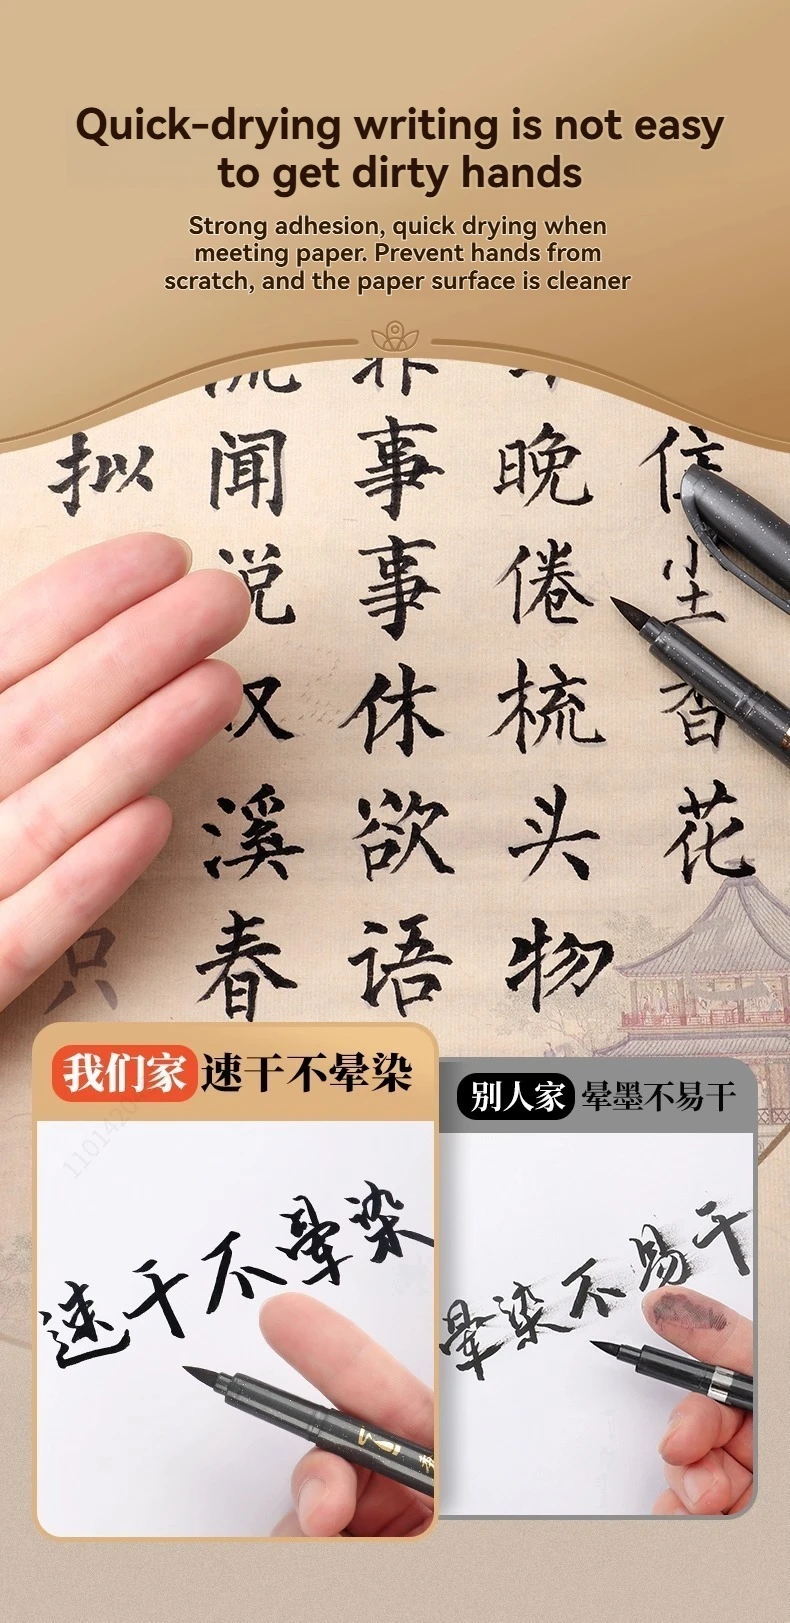 Quick-drying writing is not easy
to get dirty hands
Strong adhesion, quick drying when
meeting paper. Prevent hands from
scratch, and the paper surface is cleaner
尘香花
晚倦梳头物
非事事休欲语
流闻说双溪春
拟
只
我们家 速干不晕染
速干不晕染
别人家 晕墨不易干
晕染不易干